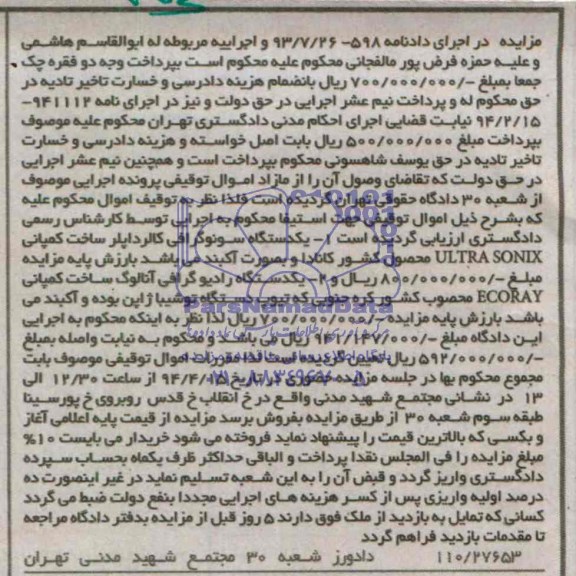 مزایده در اجرای دادنامه ۵۹۸- ۹۳/۷/۲۶ و اجراییه مربوطه له ابوالقاسم هاشمی
و علیه حمزه فرض پور مالفجانی محکوم علیه محکوم است بپرداخت وجه دو فقره چک
جمعا بمبلغ -/۷۰۰/۰۰۰/۰۰۰ ریال بانضمام هزینه دادرسی و خسارت تاخیر تادیه در
حق محکوم له و پرداخت نیم عشر اجرایی در حق دولت و نیز در اجرای نامه ۹۴۱۱۱۲-
۹۴/۲/۱۵ نیابت قضایی اجرای احکام مدنی دادگستری تهران محکوم علیه موصوف
بپرداخت مبلغ ۵۰۰/۰۰۰/۰۰۰ ریال بابت اصل خواسته و هزینه دادرسی و خسارت
تاخیر تادیه در حق یوسف شاهسونی محکوم بپرداخت است و همچنین نیم عشر اجرایی
در حق دولت که تقاضای وصول آن را از مازاد اموال توقیفی پرونده اجرایی موصوف
از شعبه ۳۰ دادگاه حقوقی تهران گردیده است فلذا نظر به توقیف اموال محکوم علیه
که بشرح ذیل اموال توقیفی جهت استیفا محکوم به اجرایی توسط کارشناس رسمی
دادگستری ارزیابی گردیده است ۱- یکدستگاه سونوگرافی کالرداپلر ساخت کمپانی
ULTRA SONIX محصول کشور کانادا و بصورت آکبند می باشد بارزش پایه مزایده
مبلغ -/۸۰۰/۰۰۰/۰۰۰ ریال و ۲- یکدستگاه رادیو گرافی آنالوگ ساخت کمپانی
ECORAY محصوب کشور کره جنوبی که تیوب دستگاه توشیبا ژاپن بوده و آکبند می
باشد بارزش پایه مزایده -/۷۰۰/۰۰۰/۰۰۰ ریال لذا نظر به اینکه محکوم به اجرایی
این دادگاه مبلغ -/۹۴۱/۱۴۷/۰۰۰ ریال می باشد و محکوم به نیابت واصله بمبلغ
-/۵۹۲/۰۰۰/۰۰۰ ریال تعیین گردیده است لذا مقررات اموال توقیفی موصوف بابت
مجموع محکوم بها در جلسه مزایده حضوری در تاریخ ۹۴/۴/۱۵ از ساعت ۱۲/۳۰ الی
۱۳ در نشانی مجتمع شهید مدنی واقع در خ انقلاب خ قدس روبروی خ پورسینا
طبقه سوم شعبه ۳۰ از طریق مزایده بفروش برسد مزایده از قیمت پایه اعلامی آغاز
و بکسی که بالاترین قیمت را پیشنهاد نماید فروخته می شود خریدار می بایست ۱۰%
مبلغ مزایده را فی المجلس نقدا پرداخت و الباقی حداکثر ظرف یکماه بحساب سپرده
دادگستری واریز گردد و قبض آن را به این شعبه تسلیم نماید در غیر اینصورت ده
درصد اولیه واریزی پس از کسر هزینه های اجرایی مجددا بنفع دولت ضبط می گردد
کسانی که تمایل به بازدید از ملک فوق دارند ۵ روز قبل از مزایده بدفتر دادگاه مراجعه
تا مقدمات بازدید فراهم گردد
۱۱۰/۲۷۶۵۳ دادورز شعبه ۳۰ مجتمع شهید مدنی تهران
ParsNamadData